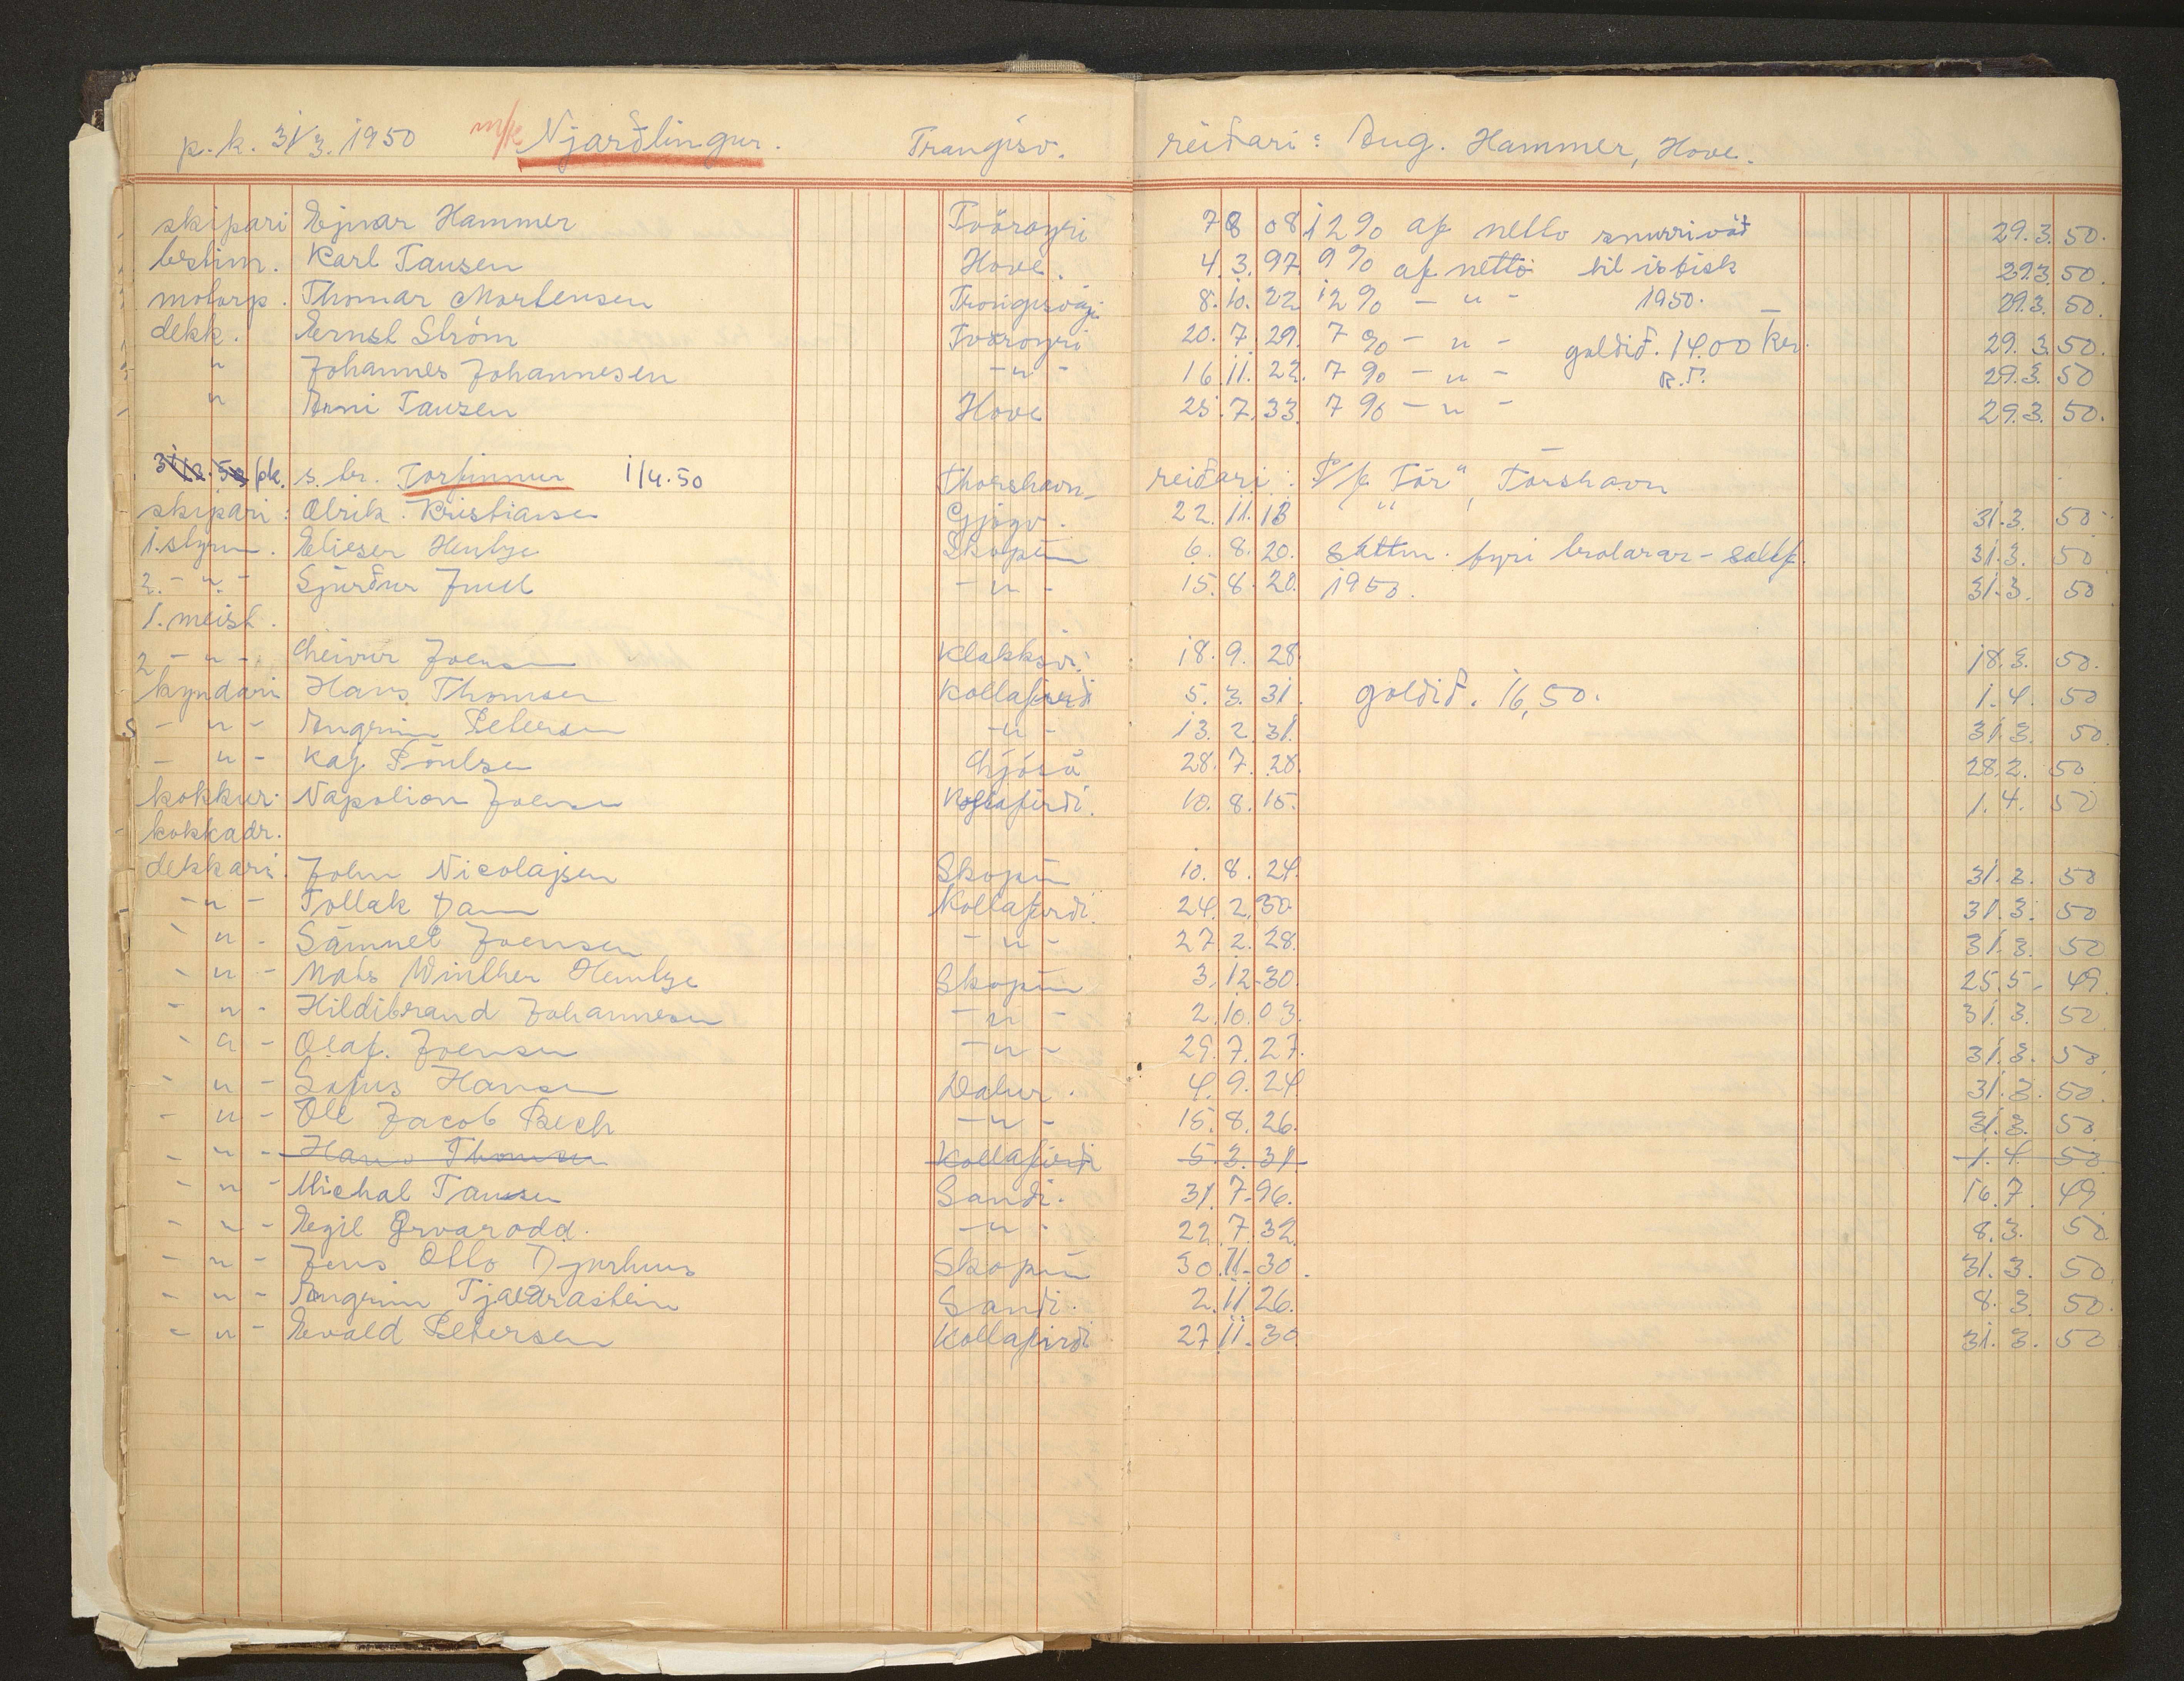 p.k. 31/3. 1950 m/k Njarðlingur. Trangisv. reiðari: Aug. Hammer, Hove.
skipari Ejnar Hammer Tvöroyri 7 8 08 12% af netto snurrivát 29.3.50.
bestim. Karl Tausen Hove. 4.3.97. 9% af netto til ísfisk 29.3.50.
motorp. Thomar Mortensen Trongisvági 8.10.22 12% - " - 1950. 29.3.50.
dekk. Ernst Ström Tvöroyri 20.7.29. 7% - " - goldið. 14.00 kr. 29.3.50.
" Johannes Johannesen - " - 16.11.22. 7% - " - R.T. 29.3.50
" Arni Tausen Hove 25.7.33. 7% - " - 29.3.50.
31/3.50 pk. s.br. Torfinnur 1/4.50 Thorshavn reiðari: P/f "Tór", Tórshavn
skipari: Olrik Kristiansen Gjógv. 22.11.13 31.3.50
1. stýrm. Elieser Hentze Skopun 6.8.20. sáttm. fyri trolarar - saltf. 31.3.50
2. - " - Sjúrður Juul - " - 15.8.20. 1950. 31.3.50
1. meist.
2 - " - Joensen Klakksvi. 18.9.28. 18.3.50.
kyndari Hans Thomsen Kollafirði 5.3.31. goldið. 16,50. 1.4.50
- " - Angrim Petersen - " - 13.2.31. 31.3.50.
- " - Kaj Póulsen 28.7.28. 28.2.50
kokkur Napolion Joensen Kollafirði. 10.8.15. 1.4.50
kokkadr.
dekkari John Nicolajsen Skopun 10.8.24. 31.3.50
- " - Tollak Dam Kollafirði. 24.2.30 31.3.50
- " - Sámuel Joensen - " - 27.2.28. 31.3.50
- " - Mats Winther Hentze Skopun 3.12.30. 25.5.49.
- " - Hildibrand Johannesen - " - 2.10.03. 31.3.50
- " - Olaf. Joensen - " - 29.7.27. 31.3.50
- " - Sofus Hansen Dalur. 4.9.24. 31.3.50.
- " - Ole Jacob Bech - " - 15.8.26. 31.3.50
- " - Hans Thomsen Kollafirði 5.3.31 1.4.50
- " - Michal Tausen Sandi. 31.7.96. 16.7.49
- " - Egil Ørvarodd. - " - 22.7.32. 8.3.50
- " - Jens Otto Djurhuus Skopun 30.11.30. 31.3.50
- " - Angrim Tjaldrastein Sandi. 2.11.26. 8.3.50.
- " - Evald Petersen Kollafirði 27.11.30 31.3.50